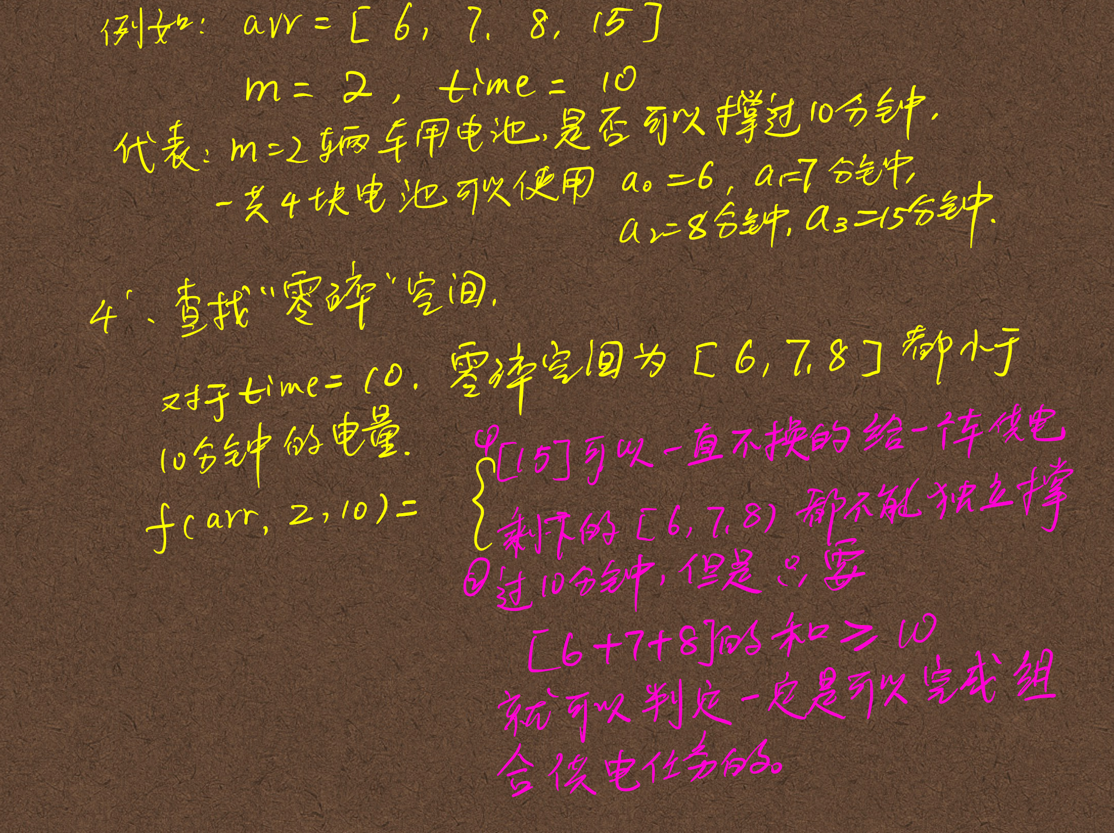 例如: arr = [ 6, 7, 8, 15 ]
m = 2, time = 10
代表: m=2辆车用电池,是否可以撑过10分钟,
一共4块电池可以使用 a₀=6, a₁=7分钟,
a₂=8分钟, a₃=15分钟.
4'、查找“零碎”空间.
对于time=10. 零碎空间为 [ 6, 7, 8 ] 都小于
10分钟的电量.
① [15]可以一直不换的给一个车供电
f(arr, 2, 10) = {
剩下的 [ 6, 7, 8) 都不能独立撑
② 过10分钟, 但是只要
[6+7+8]的和 ≥ 10
就可以判定一定是可以完成组
合供电任务的。